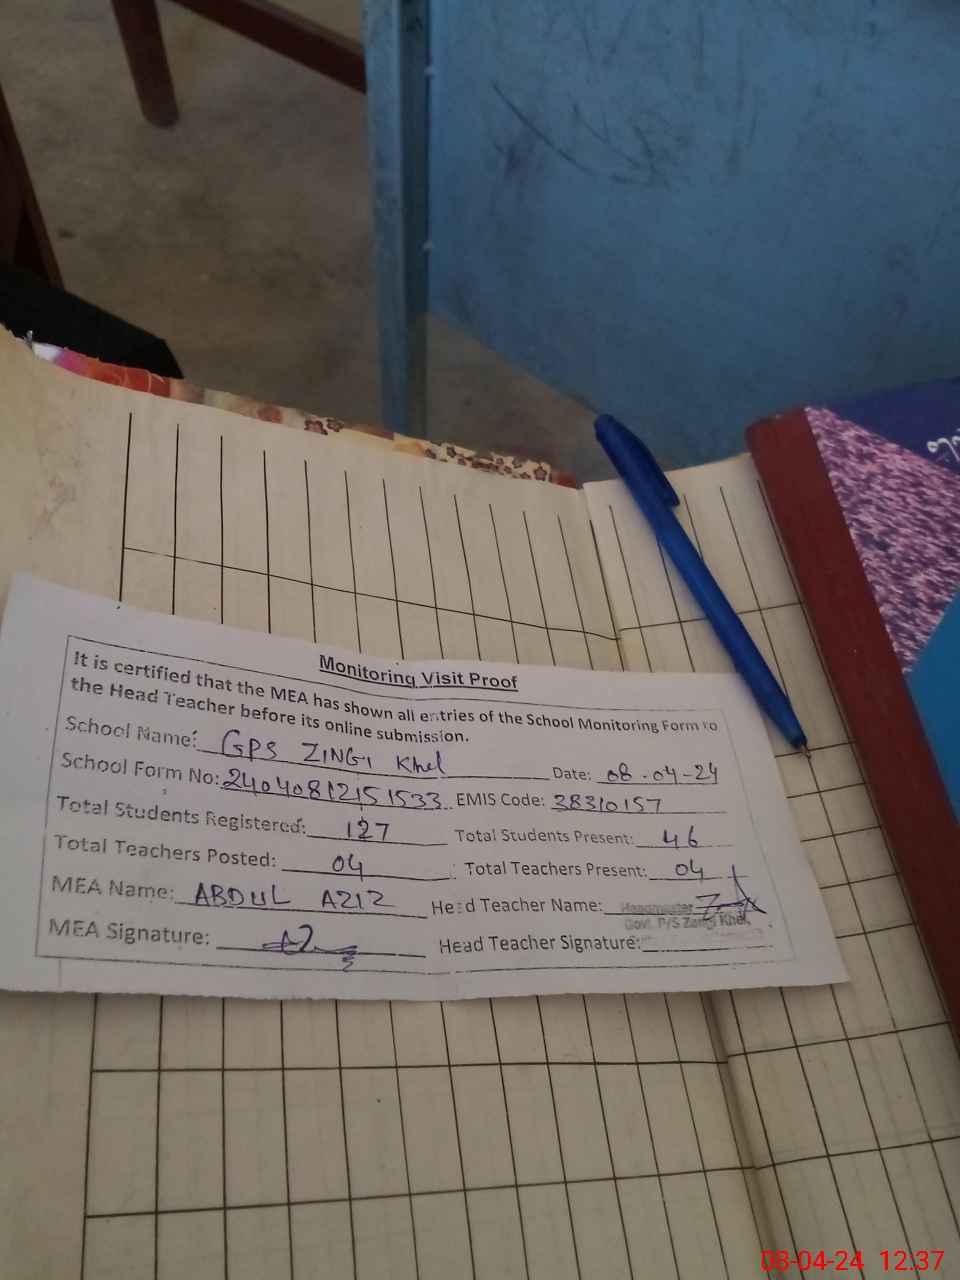 Monitoring Visit Proof
It is certified that the MEA has shown all entries of the School Monitoring Form to
the Head Teacher before its online submission.
School Name: GPS ZINGI Khel Date: 08-04-24
School Form No: 24040812151533 EMIS Code: 38310157
Total Students Registered: 127 Total Students Present: 46
Total Teachers Posted: 04 Total Teachers Present: 04
MEA Name: ABDUL AZIZ Head Teacher Name: Headmaster
Govt. P/S Zangi Khel
MEA Signature: Head Teacher Signature:
08-04-24 12.37